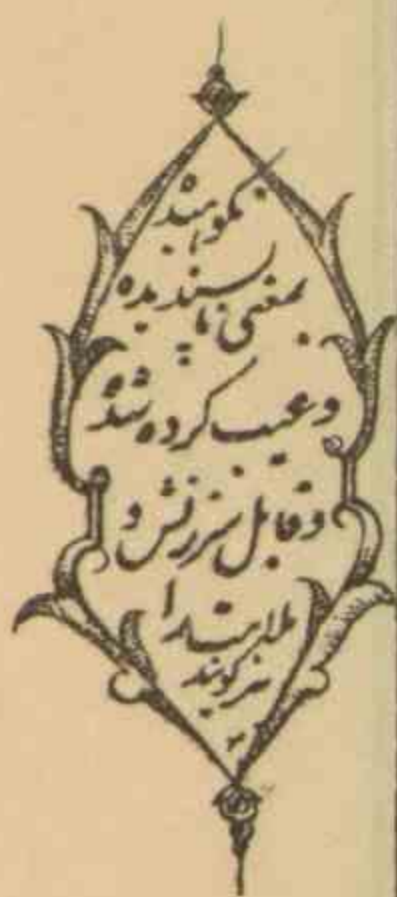 نکوهیده
بمعنی ناپسندیده
و عیب کرده شده
و قابل سرزنش و
ملامت را
نیز گویند